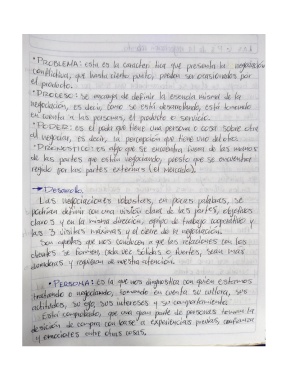 • PROBLEMA: esta es la caracteristica que presenta la negociación
conflictiva, que hasta cierto punto, puedan ser ocasionados por
el producto.
• PROCESO: se encarga de definir la esencia misma de la
negociación, es decir, cómo se está desarrollando, está tomando
en cuenta a las personas, el producto o servicio.
• PODER: es el poder que tiene una persona o cosa sobre otra
al negociar, es decir, la percepción que tiene uno del otro.
• DIAGNOSTICO: es algo que se encuentra fuera de las manos
de las partes que están negociando, puesto que se encuentran
regido por las partes externas (el mercado).
→ Desarrollo
Las negociaciones robustas, en pocas palabras, se
podrían definir con una visión clara de las partes, objetivos
claros y en la misma dirección, equipo de trabajo cooperativo y
las 3 visitas máximas y el cierre de la negociación.
Son aquellas que nos conducen a que las relaciones con los
clientes se formen cada vez sólidas o fuertes, sean más
duraderas y requieran de nuestra atención.
• PERSONA: es la que nos diagnostica con quién estamos
tratando o negociando, tomando en cuenta su cultura, sus
actitudes, su ego, sus intereses y su comportamiento.
Está comprobado, que una gran parte de personas toman la
decisión de compra con base a experiencias previas, confianza
y emociones entre otras cosas.